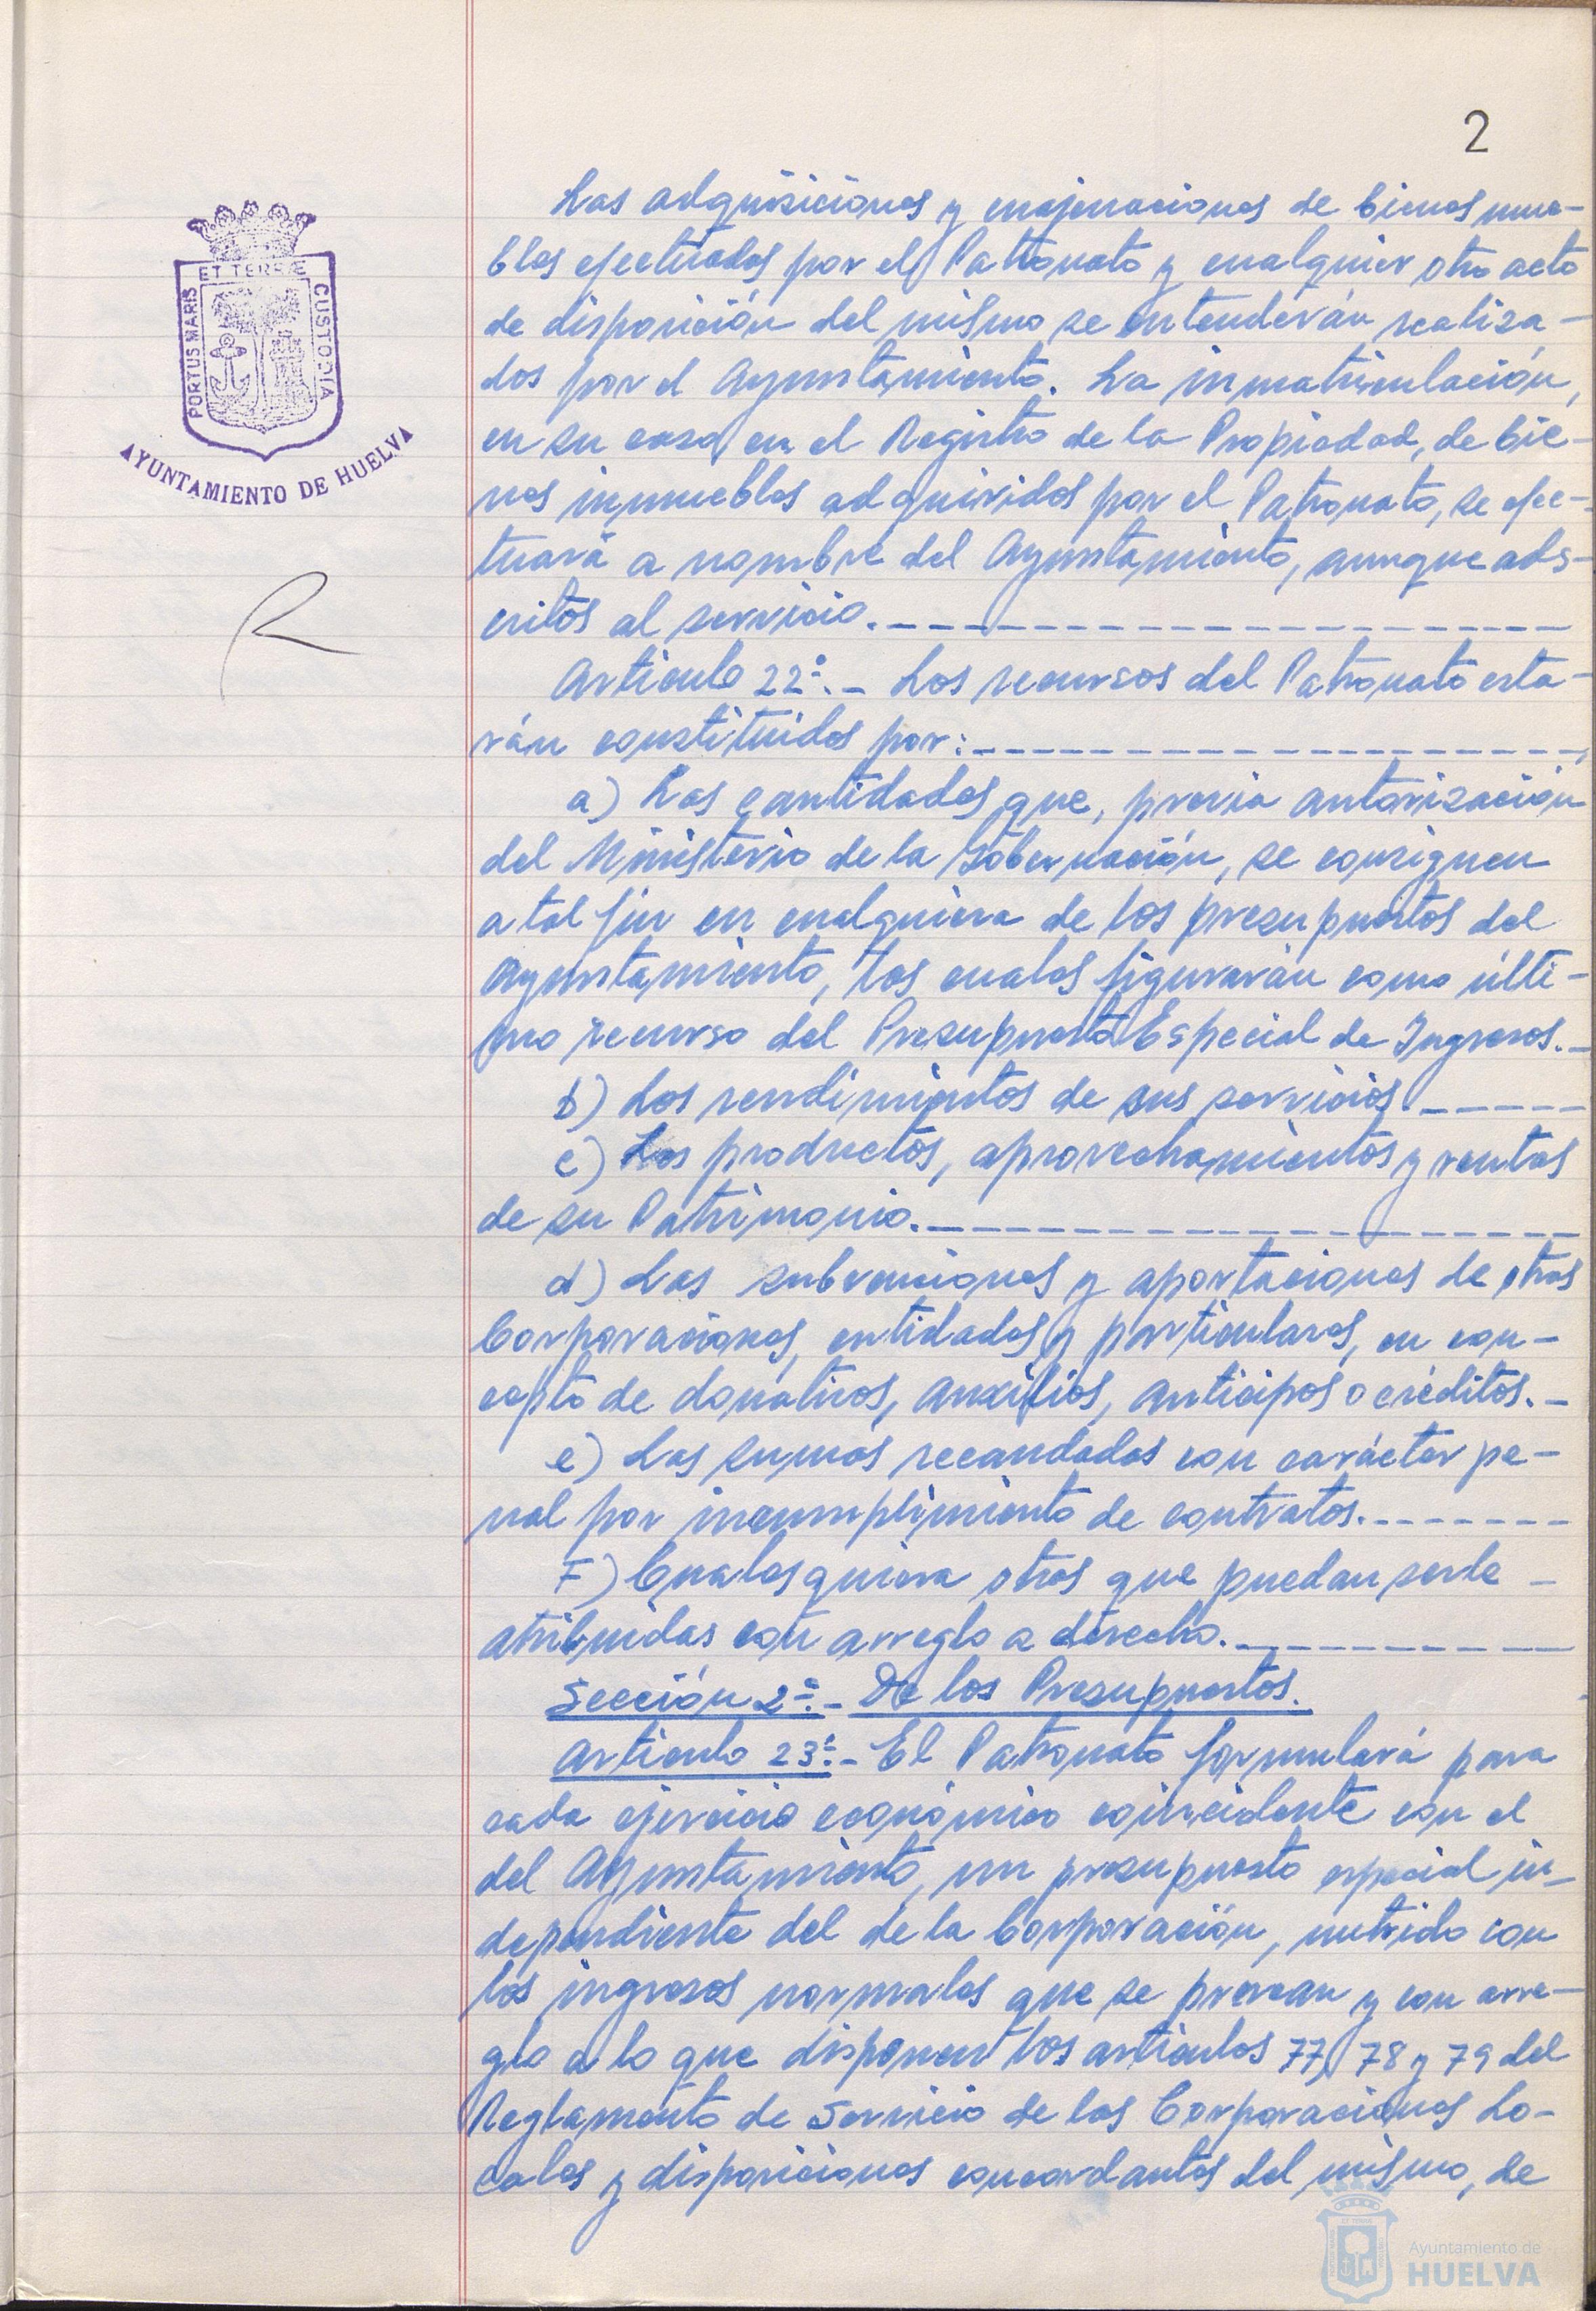 2
ET TERRÆ
PORTUS MARIS
CUSTODIA
AYUNTAMIENTO DE HUELVA
Las adquisiciones y enajenaciones de bienes mue-
bles efectuadas por el Patronato y cualquier otro acto
de disposición del mismo se entenderán realiza-
dos por el Ayuntamiento. La inmatriculación,
en su caso, en el Registro de la Propiedad, de bie-
nes inmuebles adquiridos por el Patronato, se efec-
tuará a nombre del Ayuntamiento, aunque ads-
critos al servicio.
Artículo 22º.- Los recursos del Patronato esta-
rán constituidos por:
a) Las cantidades que, previa autorización
del Ministerio de la Gobernación, se consignen
a tal fin en cualquiera de los presupuestos del
Ayuntamiento, las cuales figurarán como últi-
mo recurso del Presupuesto Especial de Ingresos.-
b) Los rendimientos de sus servicios.
c) Los productos, aprovechamientos y rentas
de su Patrimonio.
d) Las subvenciones y aportaciones de otras
Corporaciones, entidades y particulares, en con-
cepto de donativos, auxilios, anticipos o créditos.-
e) Las sumas recaudadas con carácter pe-
nal por incumplimiento de contratos.
F) Cualesquiera otras que puedan serle -
atribuidas con arreglo a derecho.
Sección 2ª.- De los Presupuestos.
Artículo 23º.- El Patronato formulará para
cada ejercicio económico coincidente con el
del Ayuntamiento, un presupuesto especial in-
dependiente del de la Corporación, nutrido con
los ingresos normales que se prevean y con arre-
glo a lo que disponen los artículos 77, 78 y 79 del
Reglamento de Servicio de las Corporaciones Lo-
cales y disposiciones concordantes del mismo, de
Ayuntamiento de
HUELVA